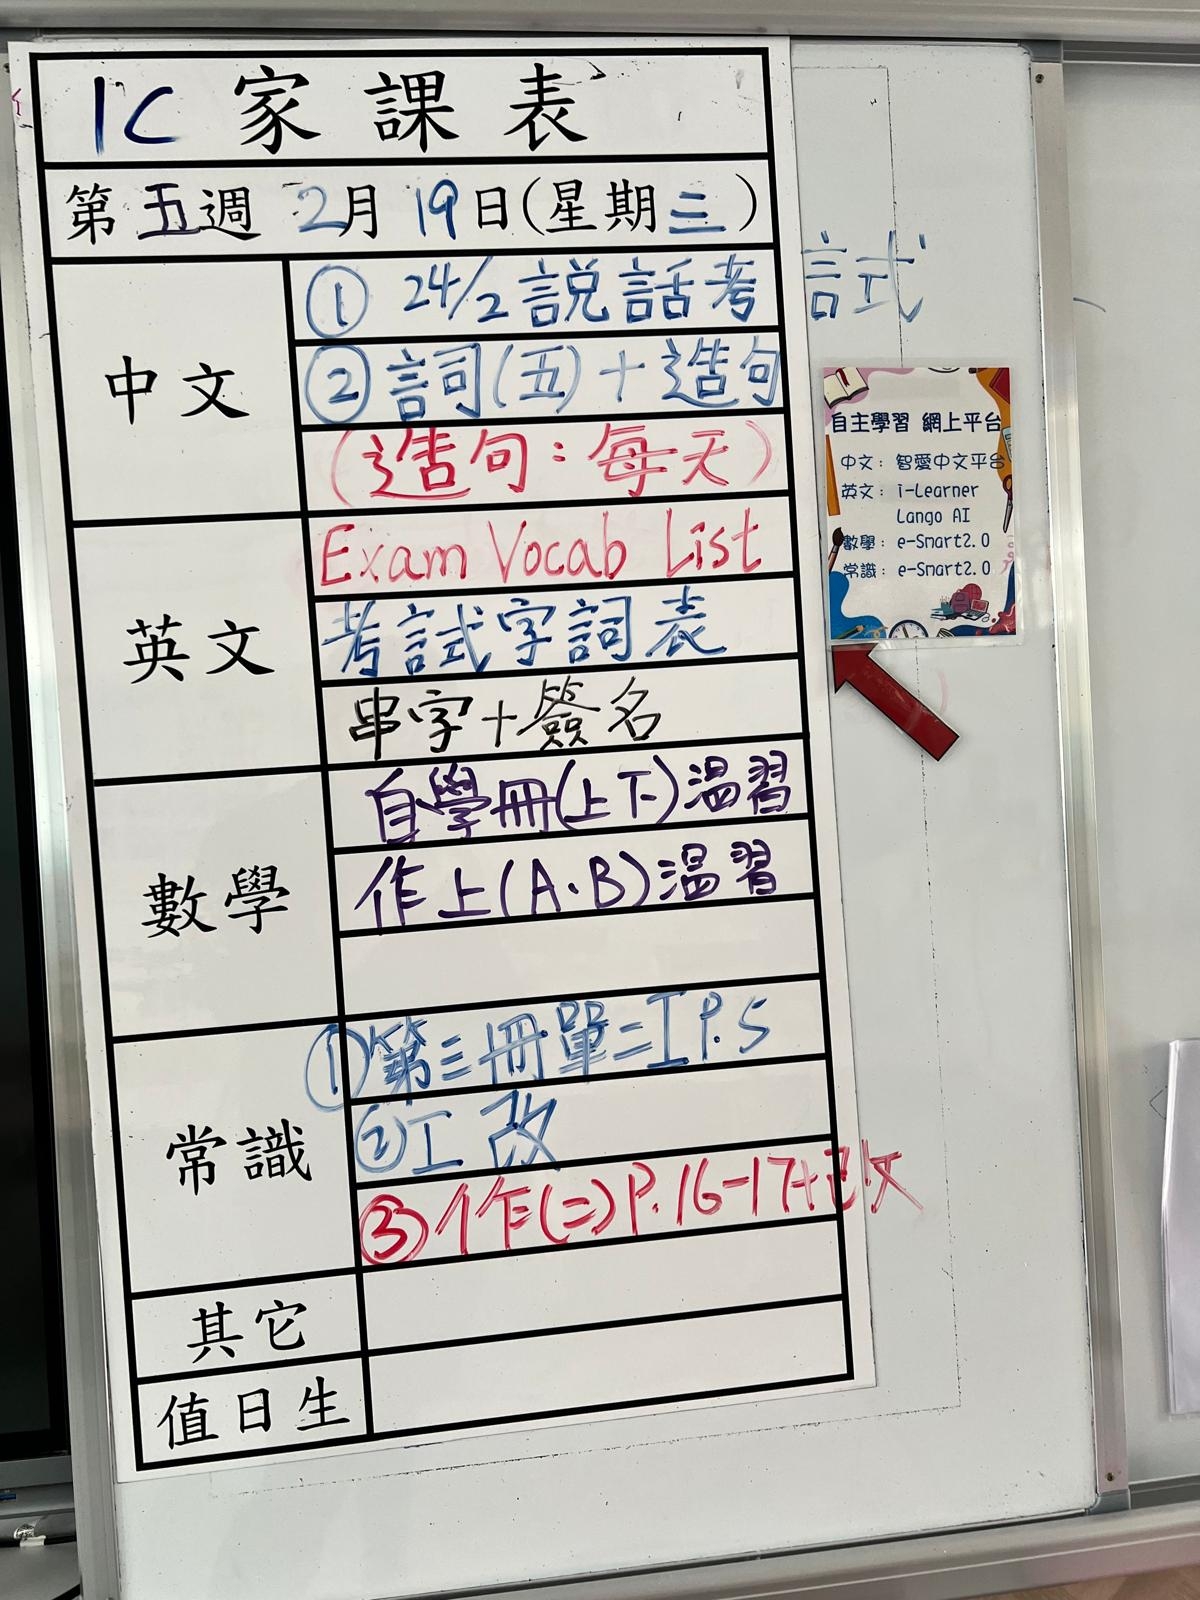 1C 家課表
第五週 2月19日(星期三)
中文
① 24/2 説話考試
② 詞(五)+造句
(造句:每天)
英文
Exam Vocab List
考試字詞表
串字+簽名
數學
自學冊(上下)温習
作上(A.B)温習
常識
①第三冊單二工P.5
②工改
③作(二)P.16-17+改
其它
值日生
自主學習 網上平台
中文：智愛中文平台
英文：i-Learner
Lango AI
數學：e-Smart2.0
常識：e-Smart2.0